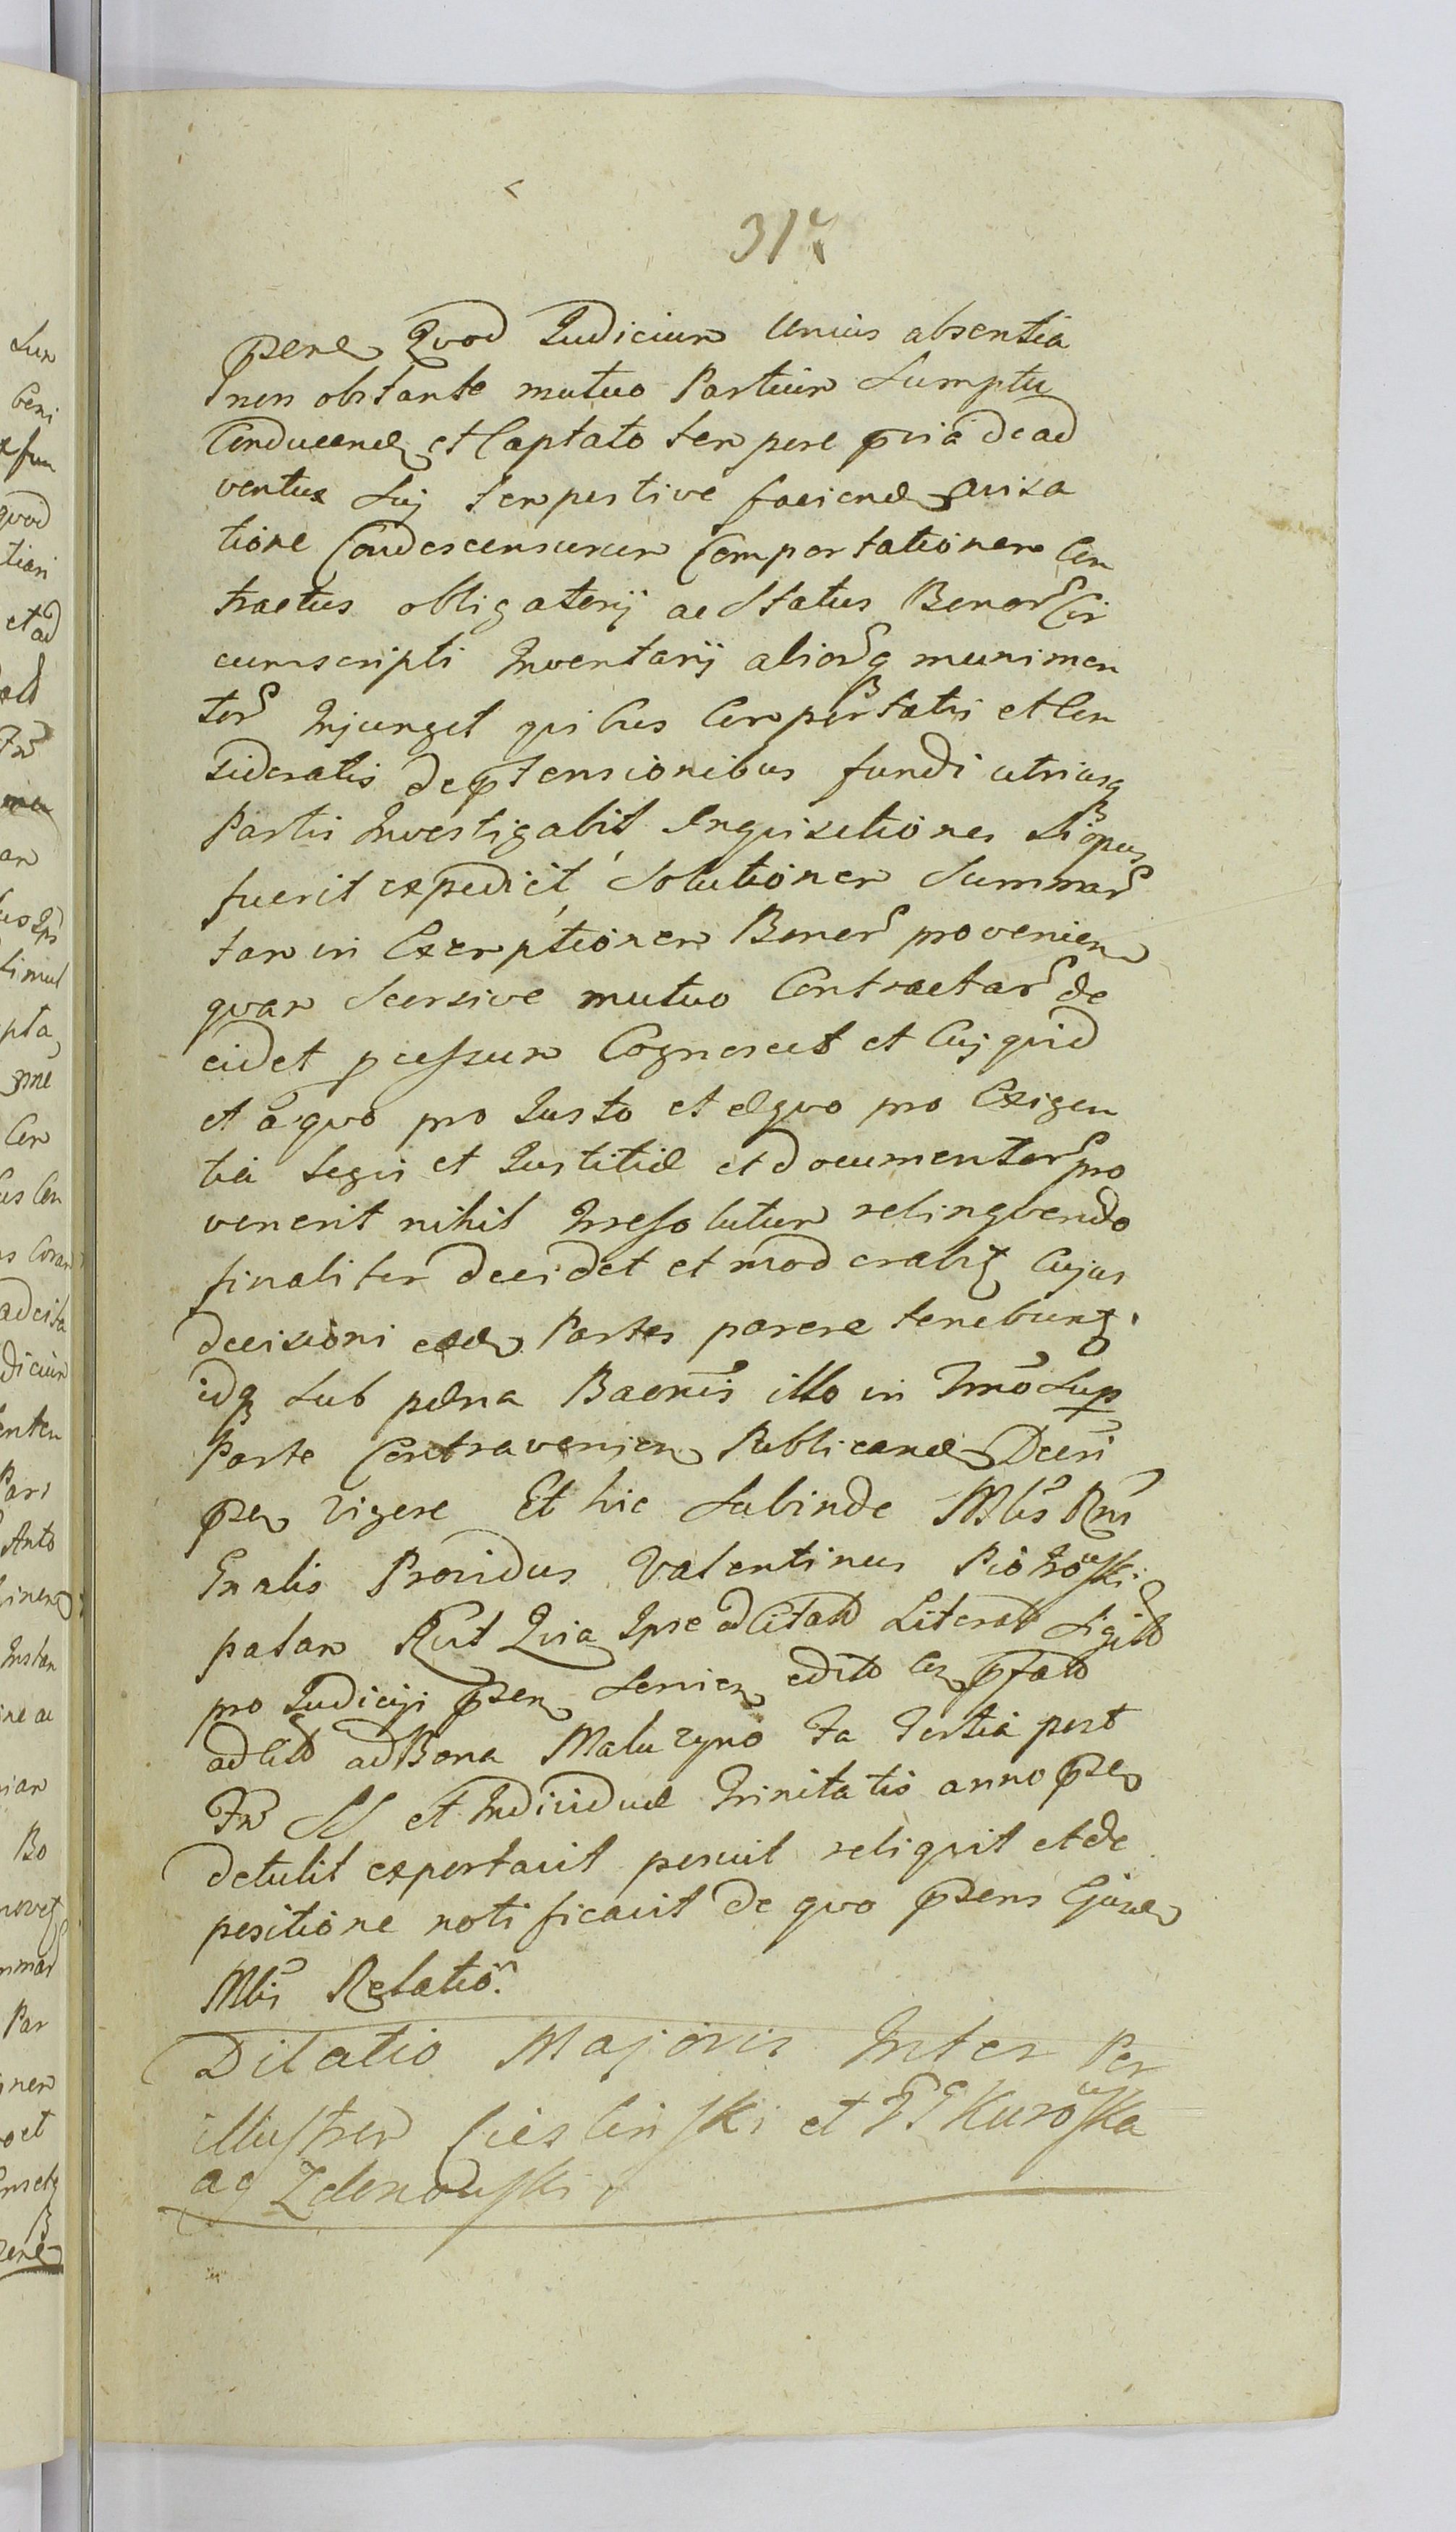 317
pene Quod Iudicium Unius absentia
non obstante mutuo Partium Sumptu
Conducend et Captato tempore pvia de ad
ventu Suj tempestive faciend avisa
tione Condescensurum Comportationem Con
tractus obligatorij ac Status Bonor Cir
cumscripti Inventarij aliorq munimen
tor Injunget quibus Comportatis et Con
sideratis de ptensionibus fundi utriusq
Partis Investigabit Inquisitiones Si opus
fuerit expediet, Solutionem Summar
tam in Exemptionem Bonor provenien
quam Seorsive mutuo Contractar de
cidet pcessum Cognoscet et Cuj quid
et a quo pro Iusto et Æquo pro Exigen
tia Legis et Iustitiæ et documentor pro
venerit nihil Irresolutum relinqvendo
finaliter decidet et moderabit Cujus
decisioni eæd Partes parere tenebunt.
idq Sub pæna Bannis illo in Tmo Sup
Parte Contravenien Publicand Decri
psen vigere Et hic Subinde Mlis Rni
Gnalis Providus Valentinus Piotrowski
palam Rcit Quia Ipse ad Citatd Literat Sigilld
pro Iudiciji psen Servien edito Con pfatd
ad Citd ad Bona Maluzyno Fa Tertia post
Ftū SS et Individuæ Trinitatis anno psen
detulit exportavit posuit reliquit et de
positione notificavit de quo psens Ejusd
Mlis Relatio.
Dilatio Majoris Inter Per
illustrem Cieslinski et GG Kurowska
ac Zdenowski